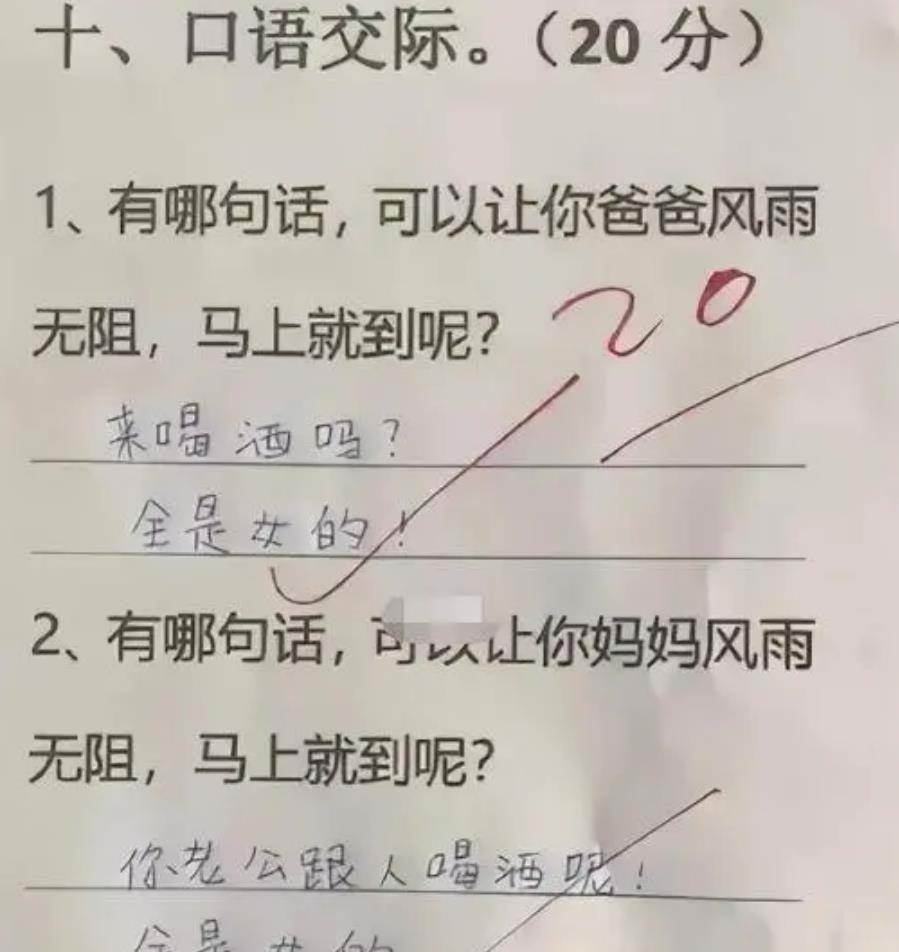 十、口语交际。（20 分）
1、有哪句话，可以让你爸爸风雨
无阻，马上就到呢？
20
来喝酒吗？
全是女的！
2、有哪句话，可以让你妈妈风雨
无阻，马上就到呢？
你老公跟人喝酒呢！
全是女的